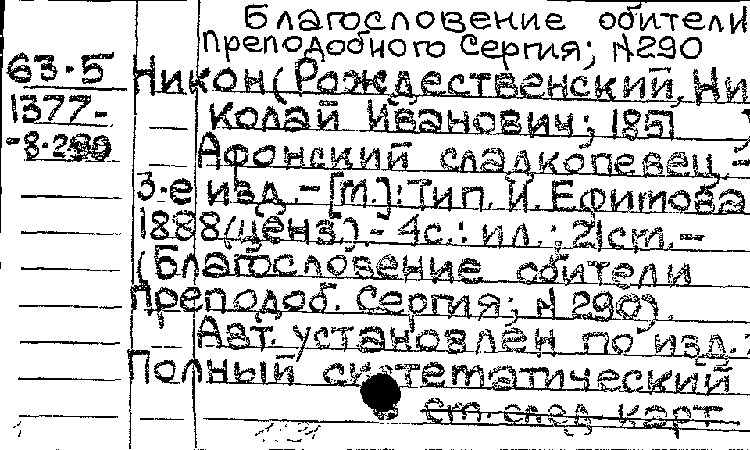 Благословение обители
преподобного Сергия; №290
63.5 Никон (Рождественский, Ни
1377- колай Иванович; 1851
-8.290 Афонский сладкопевец.-
3-е изд. - [М.]: Тип. И. Ефимова
1888 (ценз.). - 4с.: ил.; 21см. -
(Благословение обители
преподоб. Сергия; №290).
Авт. установлен по изд.:
Полный систематический
см. след. карт.